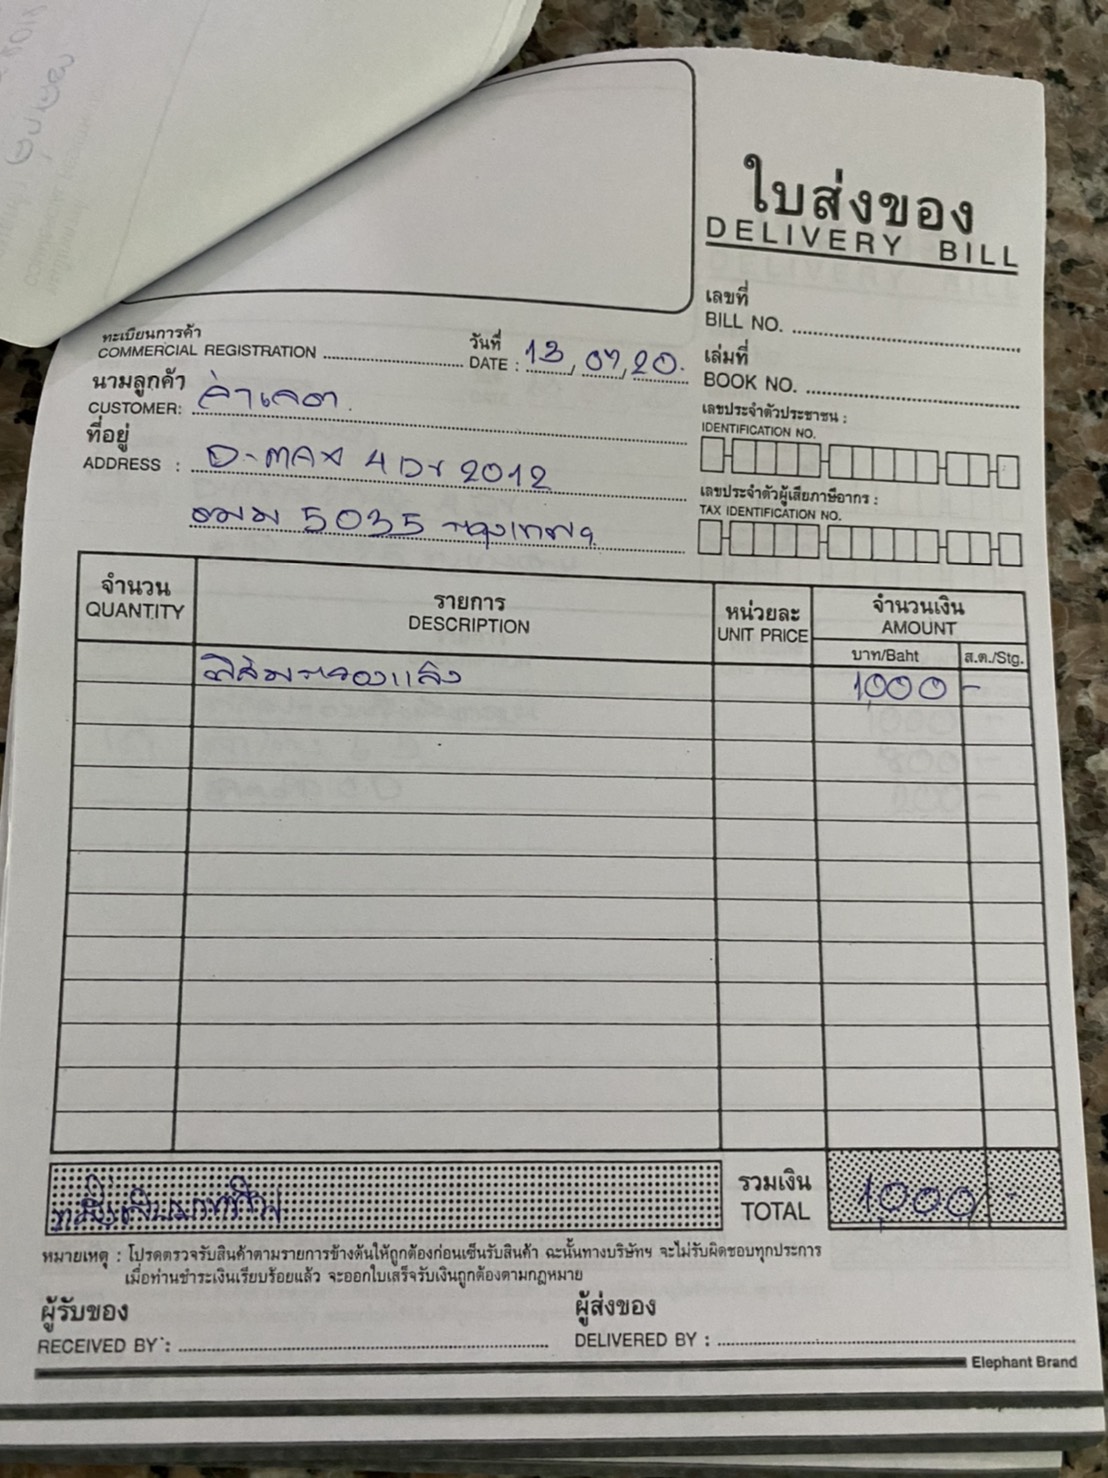 ใบส่งของ
DELIVERY BILL
เลขที่
BILL NO.
ทะเบียนการค้า
COMMERCIAL REGISTRATION
วันที่
DATE : 13, 07, 20.
เล่มที่
BOOK NO.
นามลูกค้า
CUSTOMER:
เลขประจำตัวประชาชน :
IDENTIFICATION NO.
ที่อยู่
ADDRESS : D-MAX 4 Dr 2012
เลขประจำตัวผู้เสียภาษีอากร :
TAX IDENTIFICATION NO.
5035 กรุงเทพฯ
จำนวน
QUANTITY
รายการ
DESCRIPTION
หน่วยละ
UNIT PRICE
จำนวนเงิน
AMOUNT
บาท/Baht
ส.ต./Stg.
1,000 -
รวมเงิน
TOTAL
1,000 -
หมายเหตุ : โปรดตรวจรับสินค้าตามรายการข้างต้นให้ถูกต้องก่อนเซ็นรับสินค้า ฉะนั้นทางบริษัทฯ จะไม่รับผิดชอบทุกประการ
เมื่อท่านชำระเงินเรียบร้อยแล้ว จะออกใบเสร็จรับเงินถูกต้องตามกฎหมาย
ผู้รับของ
RECEIVED BY :
ผู้ส่งของ
DELIVERED BY :
Elephant Brand